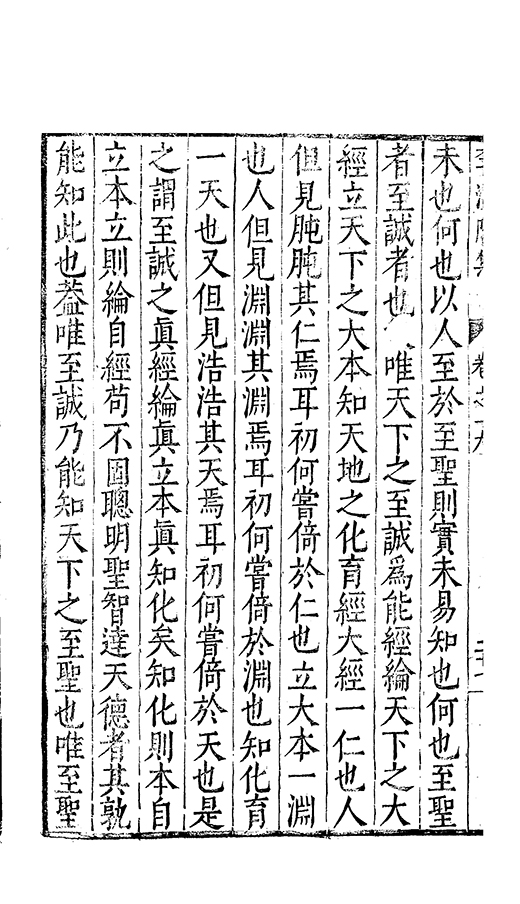 卷之十九
未也何也以人至於至聖則實未易知也何也至聖
者至誠者也唯天下之至誠爲能經綸天下之大
經立天下之大本知天地之化育經大經一仁也人
但見肫肫其仁焉耳初何嘗倚於仁也立大本一淵
也人但見淵淵其淵焉耳初何嘗倚於淵也知化育
一天也又但見浩浩其天焉耳初何嘗倚於天也是
之謂至誠之眞經綸眞立本眞知化矣知化則本自
立本立則綸自經苟不固聰明聖智達天德者其孰
能知此也葢唯至誠乃能知天下之至聖也唯至聖